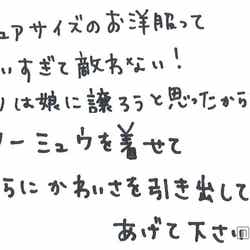 ュアサイズのお洋服って
いすぎて敵わない!
りは娘に譲ろうと思ったから
ーミュウを着せて
らにかわいさを引き出して
あげて下さい